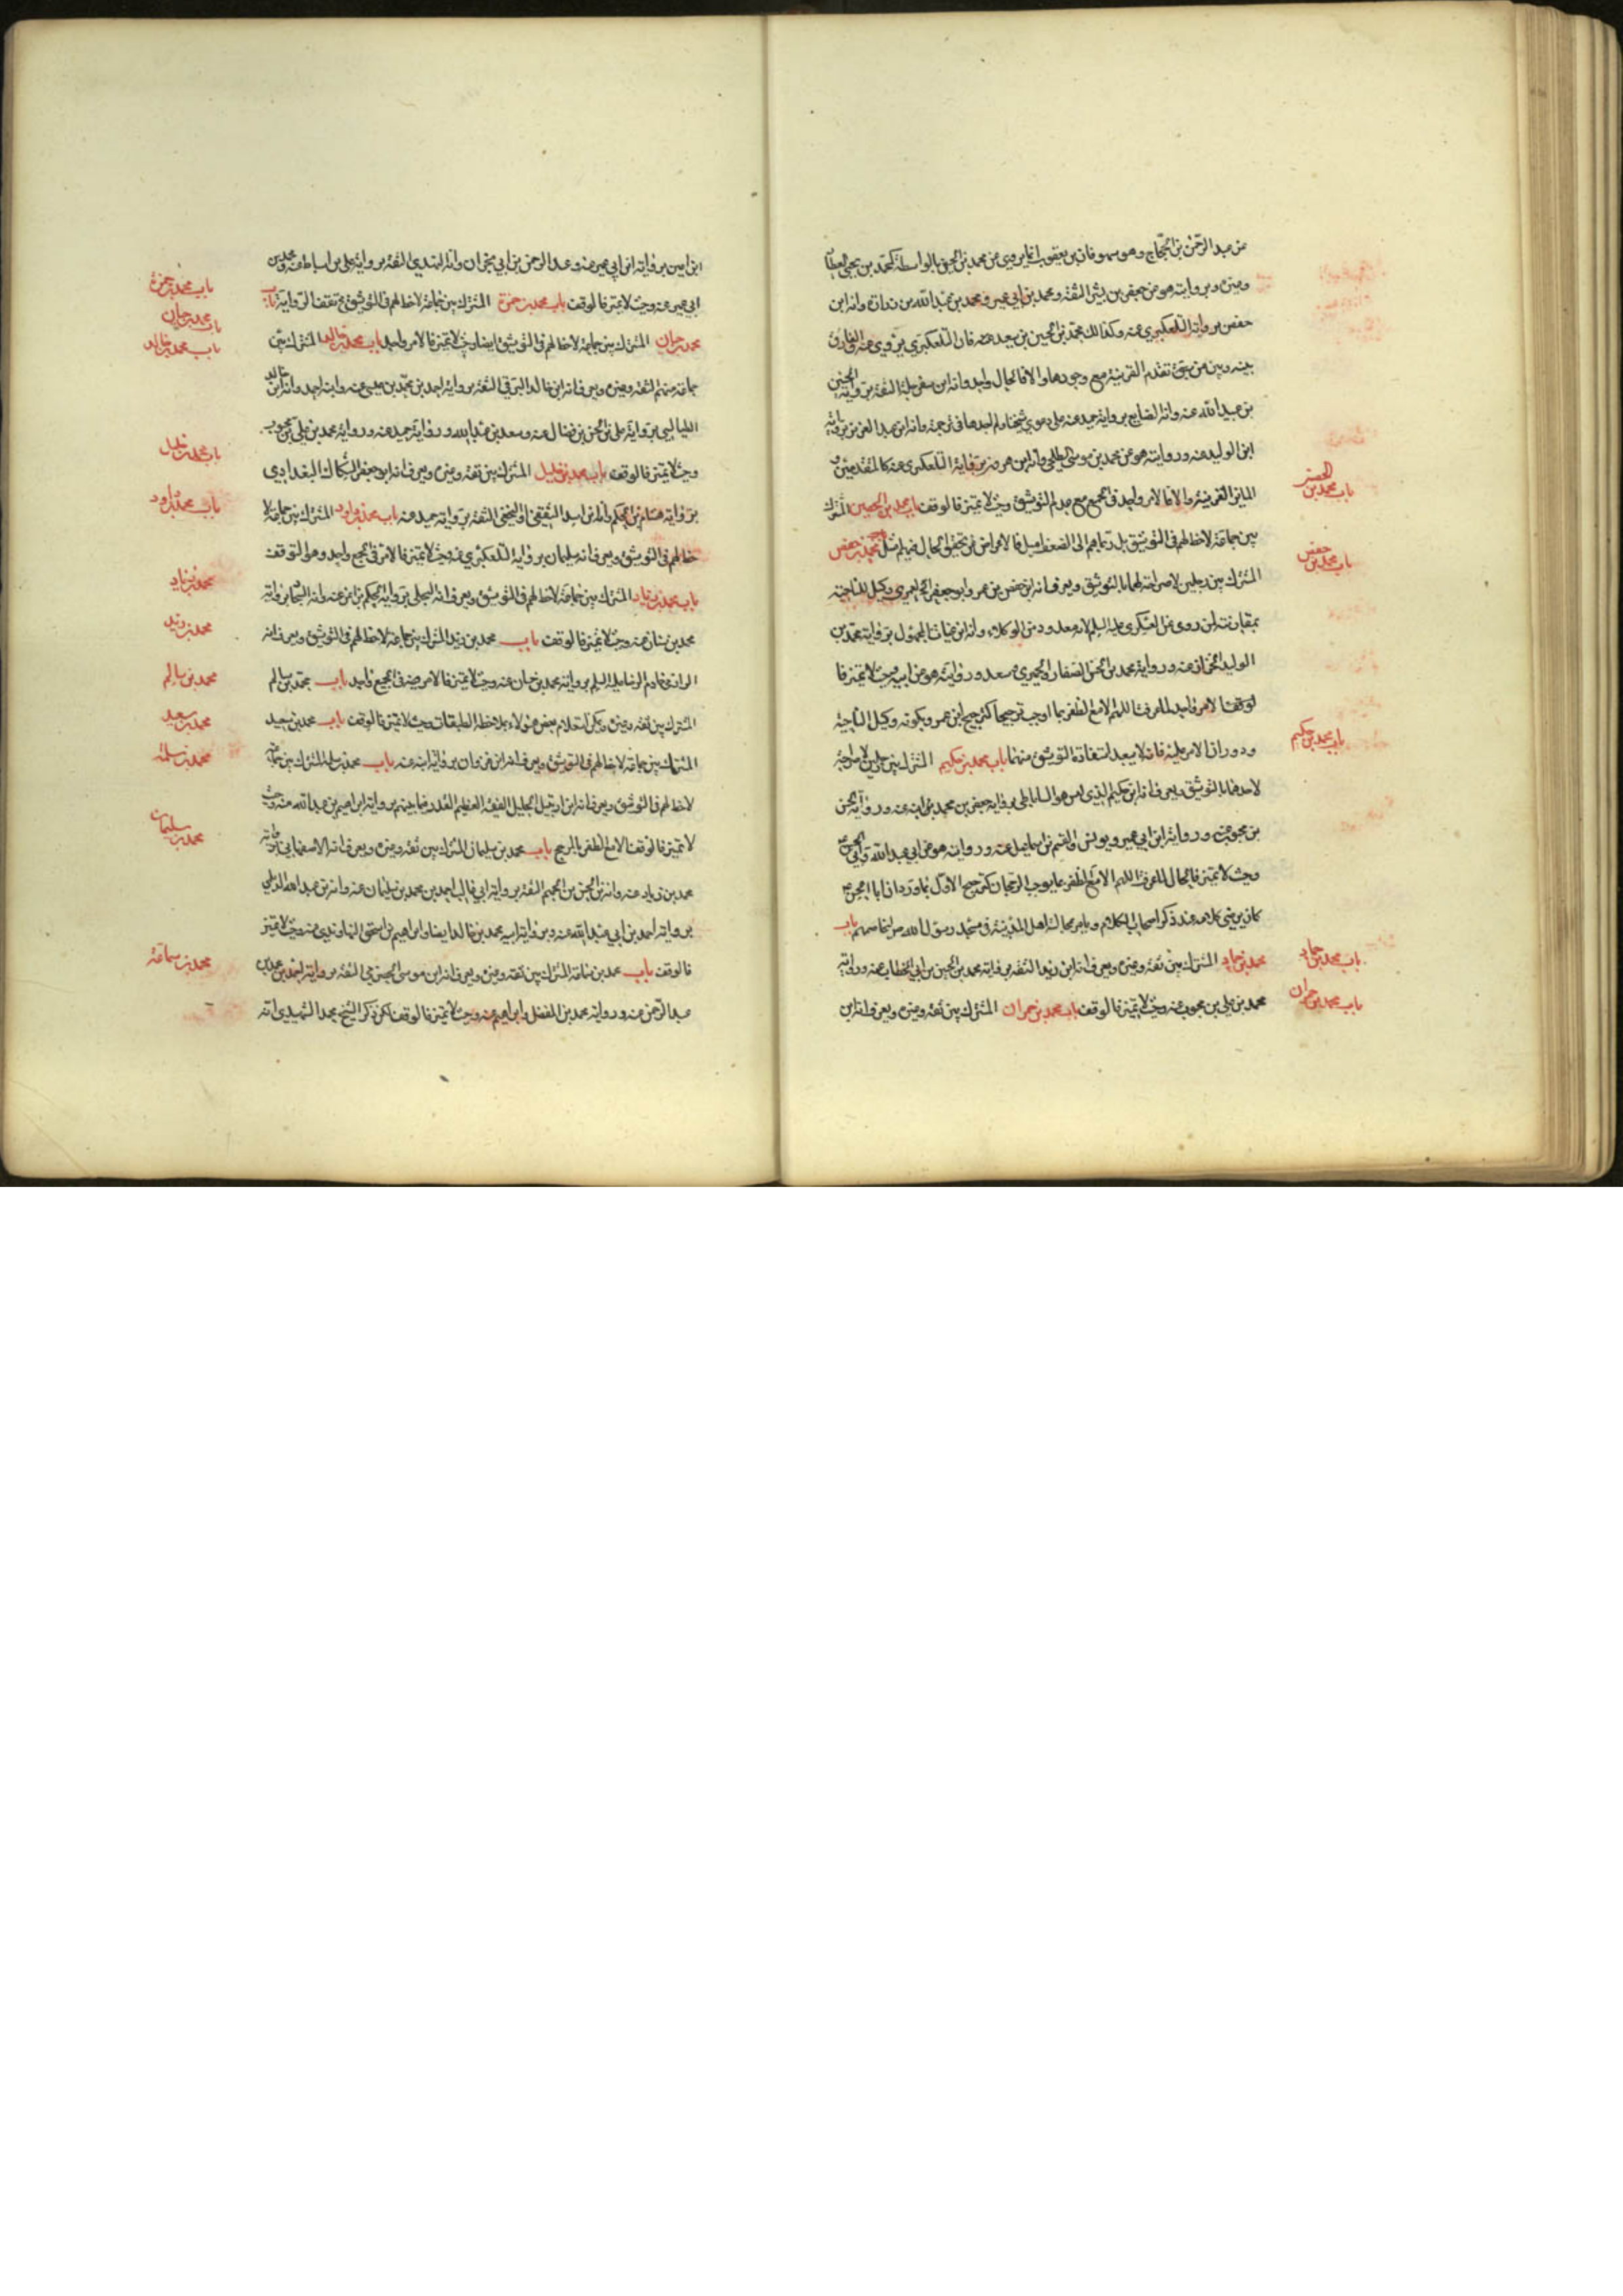 عن عبد الرحمن بن الحجاج وهو سهو فان بن يعقوب انما يروي عن محمد بن الحسن بالواسطة كمحمد بن يحيى العطار
وبروايته هو عن جعفر بن بشير الثقة ومحمد بن ابي عمير ومحمد بن عبد الله بن زرارة وانه ابن
حفص برواية التلعكبري عنه وكذلك محمد بن الحسين بن سعيد عنه فان التلعكبري يروي عنه
بينه وبين من تقدم القرينة مع وجودها والا فالحال واحد وانه ابن الثقة برواية الحسين
بن عبيد الله عنه وانه الصايغ برواية حميد عنه على دعوى شيخنا ولم اجدها في ترجمته وانه ابن عبد العزيز برواية
ابن الوليد عنه وروايته هو عن محمد بن موسى وانه ابن هرون برواية التلعكبري عنه كالمتقدمين و
المايز القرينة والا فالامر واحد في الجميع مع عدم التوثيق وحيث لا تميز فالوقف باب محمد بن الحصين المشترك
بين جماعة لا حظ لهم في التوثيق بل الى الضعف اميل فالاعراض عن تحقيق الحال فيهم مثل باب محمد بن حفص
المشترك بين رجلين لا صراحة لهما بالتوثيق ويعرف انه ابن حفص بن عمر وابو جعفر العمري وكيل الناحية
بمقارنته لمن روى عن العسكري عليه السلام لانه معدود من الوكلاء وانه ابن غياث المجهول برواية محمد بن
الوليد الخزاز عنه ورواية محمد بن الحسن الصفار والحميري وسعد وروايته هو عن ابيه وحيث لا تميز فا
لوقف لا اللهم الا مع الظفر بما اوجب ترجيحا كترجيح ابن عمر وبكونه وكيل الناحية
ودوران الامر عليه فانه لا يبعد استفادة التوثيق منهما باب محمد بن حكيم المشترك بين رجلين لا صراحة
لاحدهما بالتوثيق ويعرف انه ابن حكيم الذي ليس هو الساباطي برواية جعفر بن محمد بن حكيم ابنه عنه ورواية الحسن
بن محبوب عنه ورواية ابن ابي عمير ويونس والقسم بن اسماعيل عنه وروايته هو عن ابي عبد الله وابي الحسن ع
وحيث لا تميز فالحال اللهم الا مع الظفر بما يوجب الرجحان كترجيح الاول بما ورد ان ابا الحسن ع
كان يرضى كلامه عند ذكر اصحاب الكلام ويامر بمجالسة اهل المدينة في مسجد رسول الله ص باب
محمد بن حماد المشترك بين ثقة وغيره ويعرف انه ابن زيد الثقة برواية محمد بن الحسين بن ابي الخطاب عنه ورواية
محمد بن علي بن محبوب عنه وحيث لا تميز فالوقف باب محمد بن حمران المشترك بين ثقة وغيره ويعرف انه ابن
باب محمد بن الحصين
باب محمد بن حفص
باب محمد بن حكيم
باب محمد بن حماد
باب محمد بن حمران
ابن اعين برواية ابن ابي عمير عنه وعبد الرحمن بن ابي نجران وانه النهدي الثقة برواية علي بن اسباط عنه ومحمد بن
ابي عمير عنه وحيث لا تميز فالوقف باب محمد بن حمزة المشترك بين جماعة لا حظ لهم في التوثيق فتقف الرواية باب
محمد بن حيان المشترك بين جماعة لا حظ لهم في التوثيق ايضا وحيث لا تميز فالامر واحد باب محمد بن خالد المشترك بين
جماعة منهم الثقة وغيره ويعرف انه ابن خالد البرقي الثقة برواية احمد بن محمد بن عيسى عنه وابنه احمد وانه ابن خالد
الطيالسي برواية علي بن الحسن بن فضال عنه وسعد بن عبد الله ورواية حميد عنه ورواية محمد بن علي بن محبوب
وحيث لا تميز فالوقف باب محمد بن خليل المشترك بين ثقة وغيره ويعرف انه ابو جعفر السكاك البغدادي
برواية هشام بن الحكم وانه ابن اسد الثقفي او النخعي الثقة برواية حميد عنه باب محمد بن داود المشترك بين جماعة لا
حظ لهم في التوثيق ويعرف انه سليمان برواية التلعكبري عنه وحيث لا تميز فالامر في الجميع واحد وهو التوقف
باب محمد بن زياد المشترك بين جماعة لا حظ لهم في التوثيق ويعرف انه البجلي برواية الحكم بن ايمن عنه وانه برواية
محمد بن سنان عنه وحيث لا تميز فالوقف باب محمد بن زيد المشترك بين جماعة لا حظ لهم في التوثيق ويعرف انه
الرزامي خادم الرضا عليه السلم برواية محمد بن حسان عنه وحيث لا تميز فالامر فيه في الجميع واحد باب محمد بن سالم
المشترك بين ثقة وغيره ويمكن استعلام بعض هؤلاء بملاحظة الطبقات وحيث لا تميز فالوقف باب محمد بن سعيد
المشترك بين جماعة لا حظ لهم في التوثيق ويعرف انه ابن غزوان برواية ابنه عنه باب محمد بن سلمة المشترك بين جماعة
لا حظ لهم في التوثيق ويعرف انه ابن ارتبيل الجليل الفقيه العظيم القدر فيما بينهم برواية ابراهيم بن عبد الله عنه وحيث
لا تميز فالوقف الا مع الظفر بالمرجح باب محمد بن سليمان المشترك بين ثقة وغيره ويعرف انه الاصفهاني برواية
محمد بن زياد عنه وانه بن الحسن بن الجهم الثقة برواية ابي غالب احمد بن محمد بن سليمان عنه وانه بن عبد الله الديلمي
برواية احمد بن ابي عبد الله عنه وبرواية ابيه محمد بن خالد ايضا وابراهيم بن اسحق النهاوندي عنه وحيث لا تميز
فالوقف باب محمد بن سماعة المشترك بين ثقة وغيره ويعرف انه ابن موسى الحضرمي الثقة برواية احمد بن محمد بن
عبد الرحمن عنه ورواية محمد بن المفضل وابراهيم عنه وحيث لا تميز فالوقف لكن ذكر الشيخ محمد الشهيدي انه
باب محمد بن حمزة
باب محمد بن حيان
باب محمد بن خالد
باب محمد بن خليل
باب محمد بن داود
محمد بن زياد
محمد بن زيد
محمد بن سالم
محمد بن سعيد
محمد بن سلمة
محمد بن سليمان
محمد بن سماعة